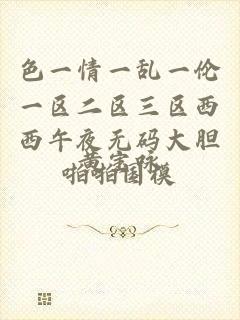 色一情一乱一伦
一区二区三区西
西午夜无码大胆
啪啪国模
黄宝咏